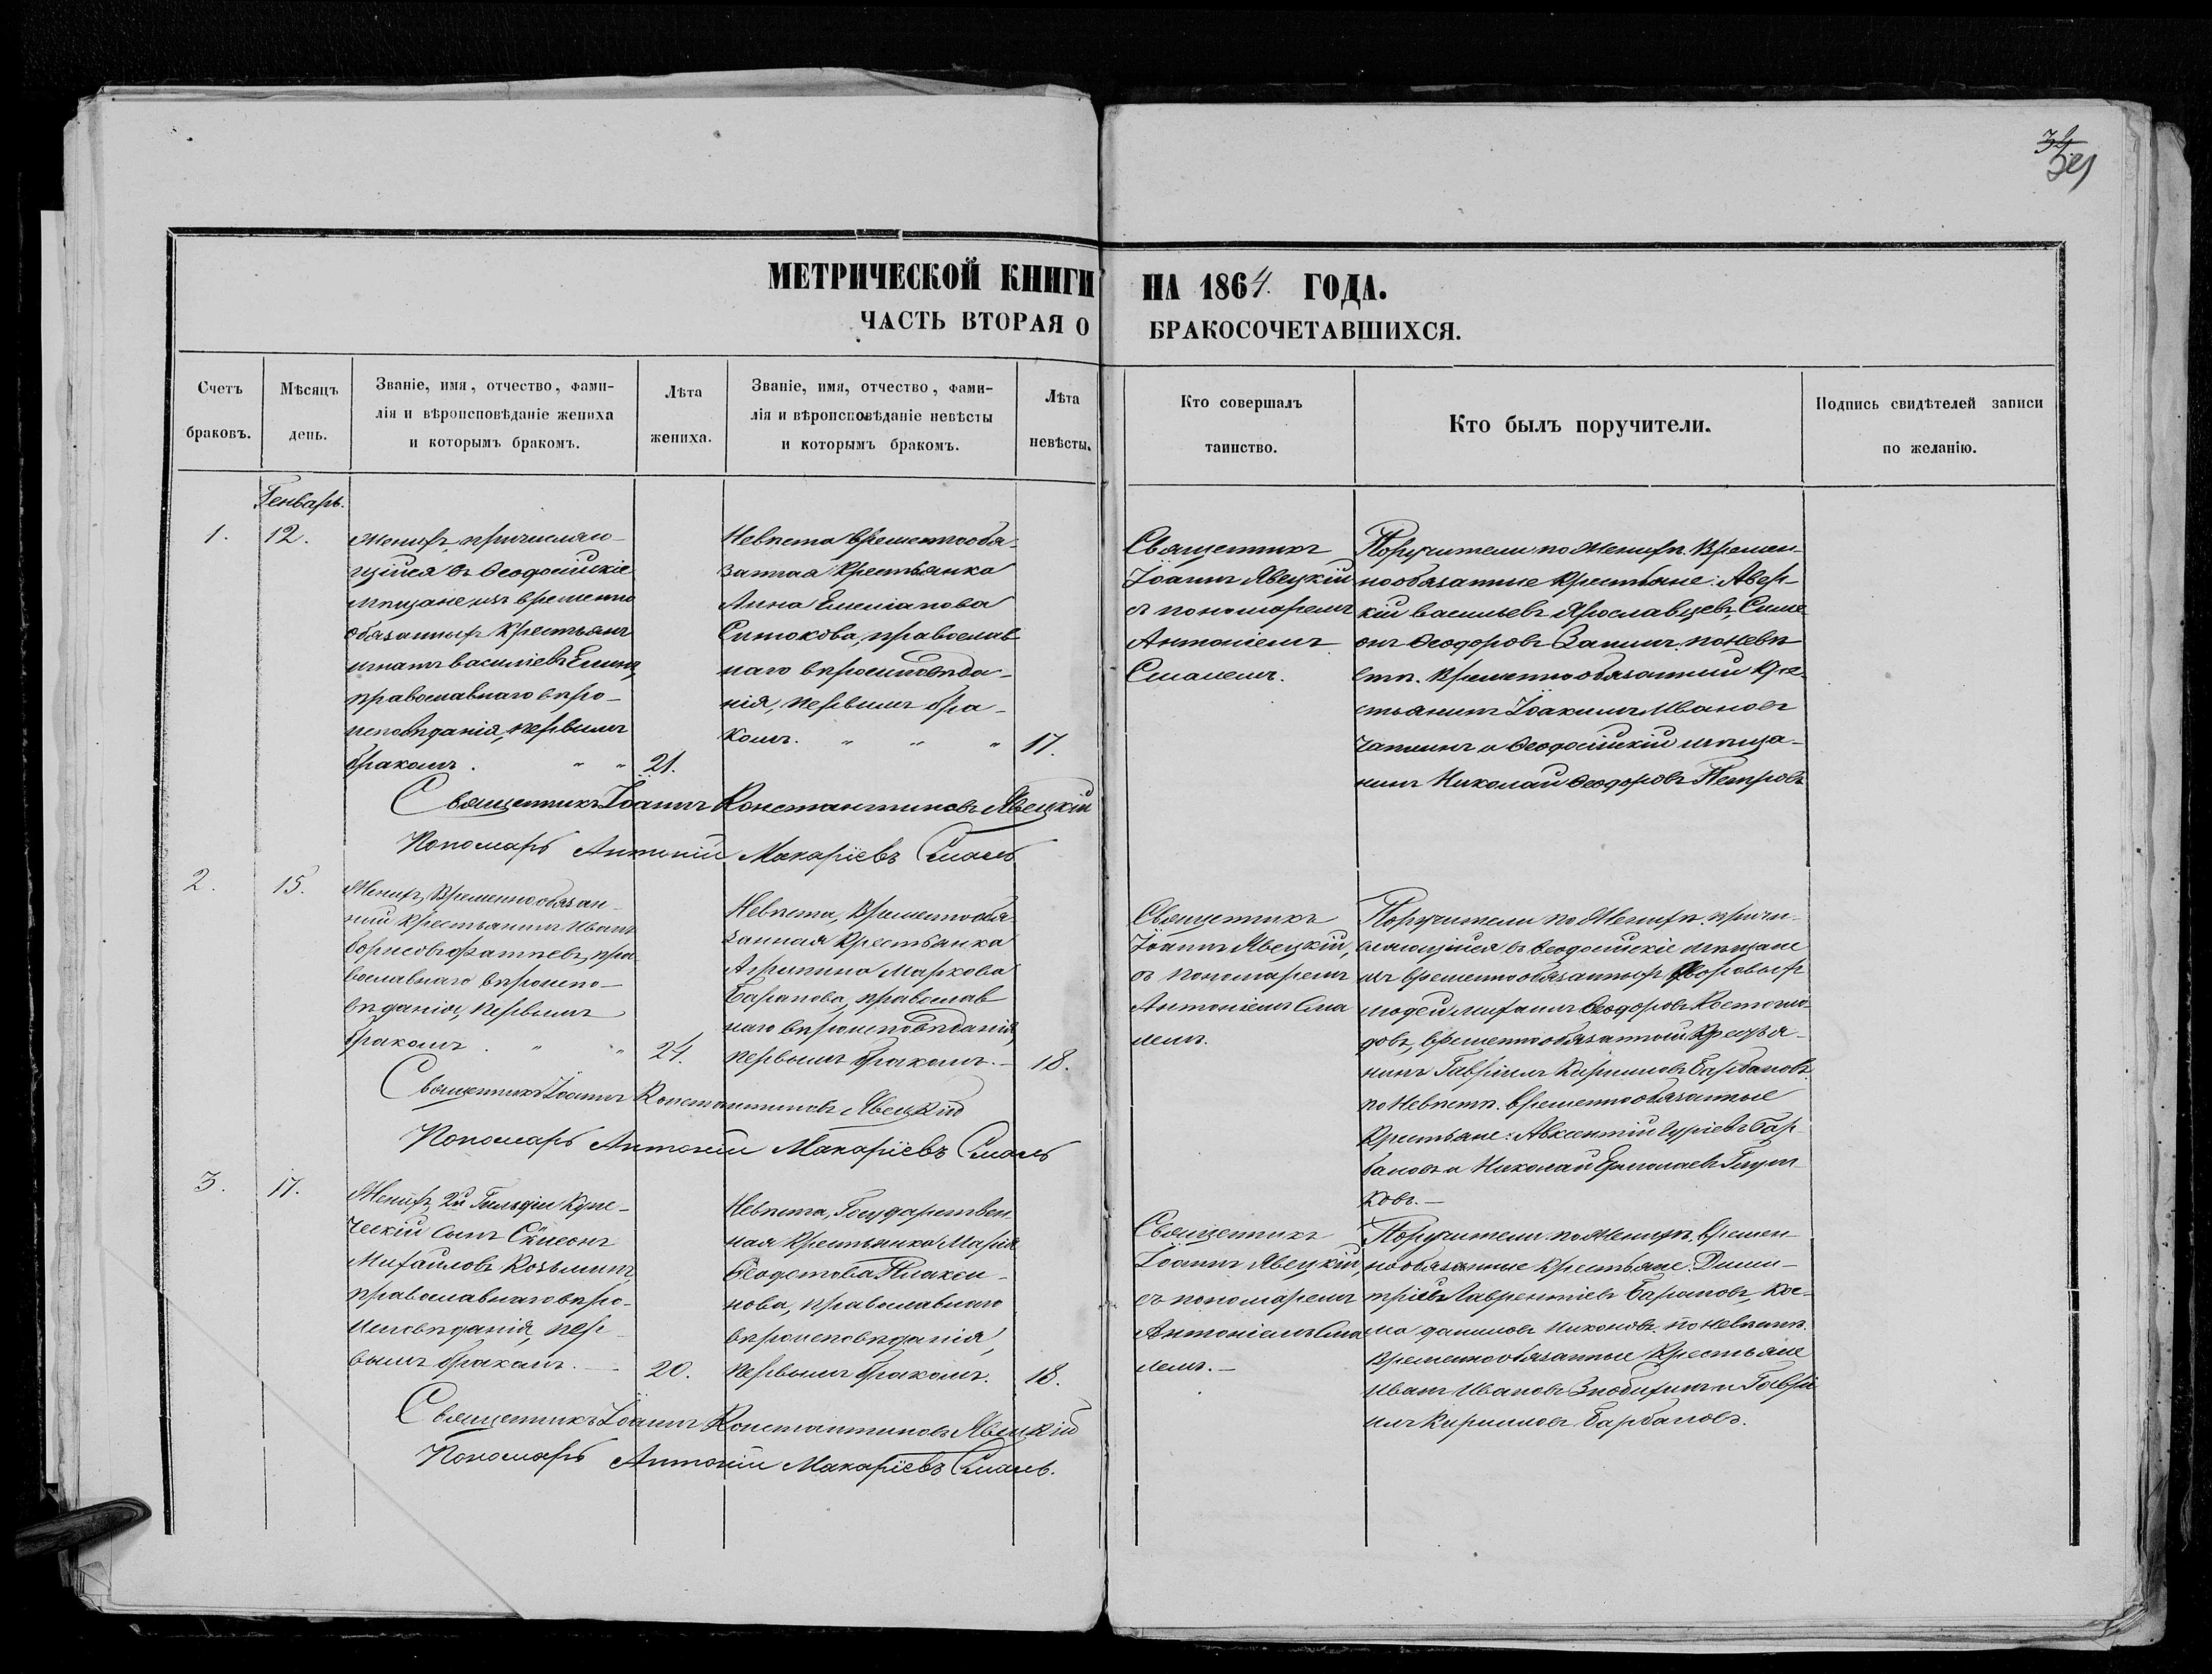 МЕТРИЧЕСКОЙ КНИГИ НА 1864. ГОДА.
ЧАСТЬ ВТОРАЯ О БРАКОСОЧЕТАВШИХСЯ.
Счетъ
браковъ.
Мѣсяцъ
день.
Званіе, имя, отчество, фами-
лія и вѣроисповѣданіе жениха
и которымъ бракомъ.
Лѣта
жениха.
Званіе, имя, отчество, фами-
лія и вѣроисповѣданіе невѣсты
и которымъ бракомъ.
Лѣта
невѣсты.
Кто совершалъ
таинство.
Кто былъ поручители.
Подпись свидѣтелей записи
по желанію.
Генварь.
1.
12.
Женихъ, причисляю-
щійся въ Ѳеодосійскіе
мѣщане изъ временно
обязанныхъ крестьянъ
Игнатъ Василіевъ
православнаго вѣро-
исповѣданія, первымъ
бракомъ. " "
21.
Невѣста временнообя-
занная крестьянка
Анна Емеліанова
Ситокова, православ
наго вѣроисповѣда-
нія, первымъ бра-
комъ. " " "
17.
Священникъ
Іоаннъ Явецкій
съ пономаремъ
Антоніемъ
Смалемъ.
Поручители по Женихѣ. Времен-
нообязанные крестьяне: Авер-
кій Васильевъ Ярославцевъ, Симе
онъ Ѳеодоровъ Занинъ. по Невѣ
стѣ. временнообязанный кре-
стьянинъ Іоакимъ Ивановъ
и Ѳеодосійскій мѣща-
нинъ Николай Ѳеодоровъ Петровъ
Священникъ Іоаннъ Константиновъ Явецкій
Пономарь Антоній Макаріевъ Смаль
2.
15.
Женихъ, Временнообязан-
ный крестьянинъ Иванъ
Борисовъ Фатѣевъ, пра
вославнаго вѣроиспо-
вѣданія, первымъ
бракомъ. " "
24.
Невѣста, временнообя-
занная крестьянка
Агрипина Маркова
Баранова, православ
наго вѣроисповѣданія,
первымъ бракомъ. -
18.
Священникъ
Іоаннъ Явецкій,
съ пономаремъ
Антоніемъ Сма
лемъ.
Поручители по Женихѣ. причи-
сляющійся въ Ѳеодосійскіе мѣщане
изъ временнообязанныхъ дворовыхъ
людей Михаилъ Ѳеодоровъ
довъ, временнообязанный крестья-
нинъ Гавріилъ Кириловъ Барбановъ.
по Невѣстѣ. временнообязанные
крестьяне: Авксентій Гуріевъ Бар-
бановъ и Николай Ермолаевъ
ковъ. -
Священникъ Іоаннъ Константиновъ Явецкій
Пономарь Антоній Макаріевъ Смаль
3.
17.
Женихъ, 2й Гильдіи купе-
ческій сынъ Сѵмеонъ
Михаиловъ Козьминъ,
православнаго вѣро-
исповѣданія, пер-
вымъ бракомъ. -
20.
Невѣста, Государствен
ная крестьянка Марія
Ѳеодотова Плакси-
нова, православнаго
вѣроисповѣданія,
первымъ бракомъ.
18.
Священникъ
Іоаннъ Явецкій,
съ пономаремъ
Антоніемъ Сма
лемъ. -
Поручители по Женихѣ, времен
нообязанные крестьяне: Дими-
трій Лаврентіевъ Барановъ, Кос-
ма Даниловъ Никоновъ. по Невѣстѣ.
временнообязанные крестьяне
Иванъ Ивановъ Злобихинъ и Гаврі
илъ Кириловъ Барбановъ.
Священникъ Іоаннъ Константиновъ Явецкій
Пономарь Антоній Макаріевъ Смаль.